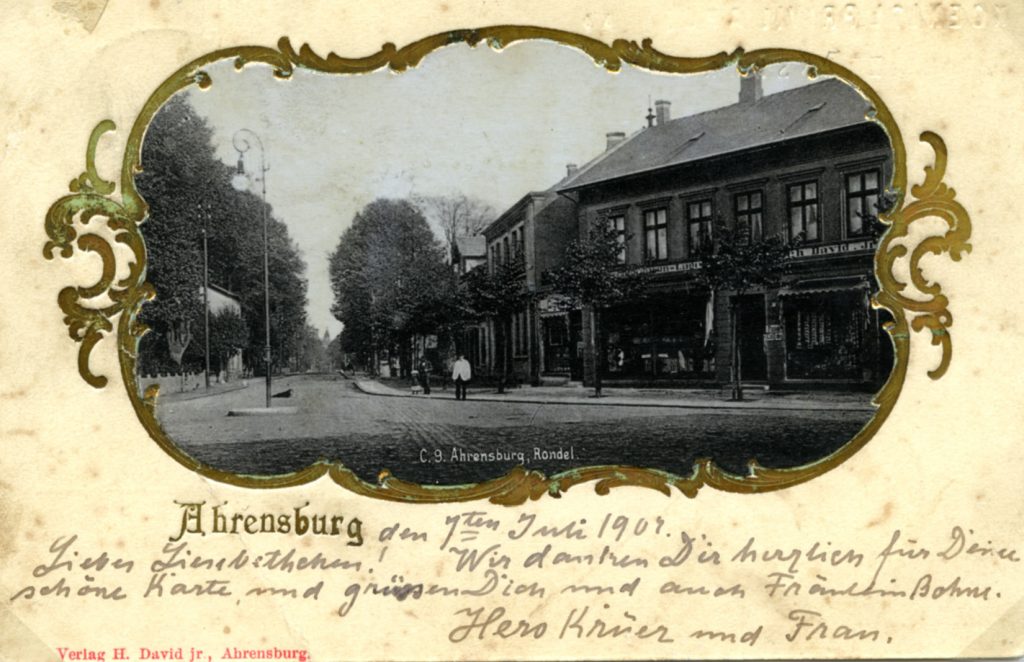 David jr.
C. 9. Ahrensburg, Rondel.
Ahrensburg den 7ten Juli 1901.
Liebes Liesbethchen! Wir danken Dir herzlich für Deine
schöne Karte, und grüssen Dich und auch Fräulein Bohne.
Hero Krüer und Frau.
Verlag H. David jr., Ahrensburg.